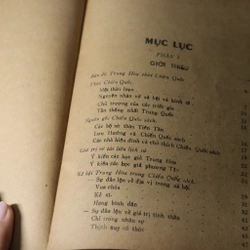 MỤC LỤC
PHẦN I
GIỚI THIỆU
Bản đồ Trung Hoa thời Chiến Quốc
Thời Chiến Quốc
Một thời loạn
Nguyên nhân về xã hội và kinh tế
Chủ trương của các triết gia
Tần thống nhất Trung Quốc
Nguồn gốc Chiến Quốc sách
Các bộ sử thời Tiên Tần
Lưu Hướng và Chiến Quốc sách
Các nhà hiệu đính và chú thích Chiến Quốc sách
Giá trị về tài liệu lịch sử
Ý kiến các học giả Trung Hoa
Ý kiến các học giả phương Tây
Xã hội Trung Hoa trong Chiến Quốc sách
— Sự đảo lộn về địa vị trong xã hội
Vua chúa
Kẻ sĩ
Hạng bình dân
— Sự đảo lộn về giá trị tinh thần
Chỉ trọng nhân sự
Thịnh suy vô thời